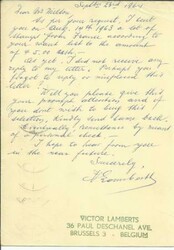 Sept. 28th 1964
Dear Mr
As per your request, I sent
you on Aug. 19th 1963 a set of
from France according to
your want list to the amount
of
As yet, I did not receive
any reply to my letter. Perhaps you
forgot to reply or misplaced this
letter?
Will you please give this
your prompt attention and if
you don't wish to buy this
selection, kindly send back.
Eventually remittance by means
of a check
I hope to hear from you
in the near future.
Sincerely,
VICTOR LAMBERTS
36 PAUL DESCHANEL AVE.
BRUSSELS 3 - BELGIUM